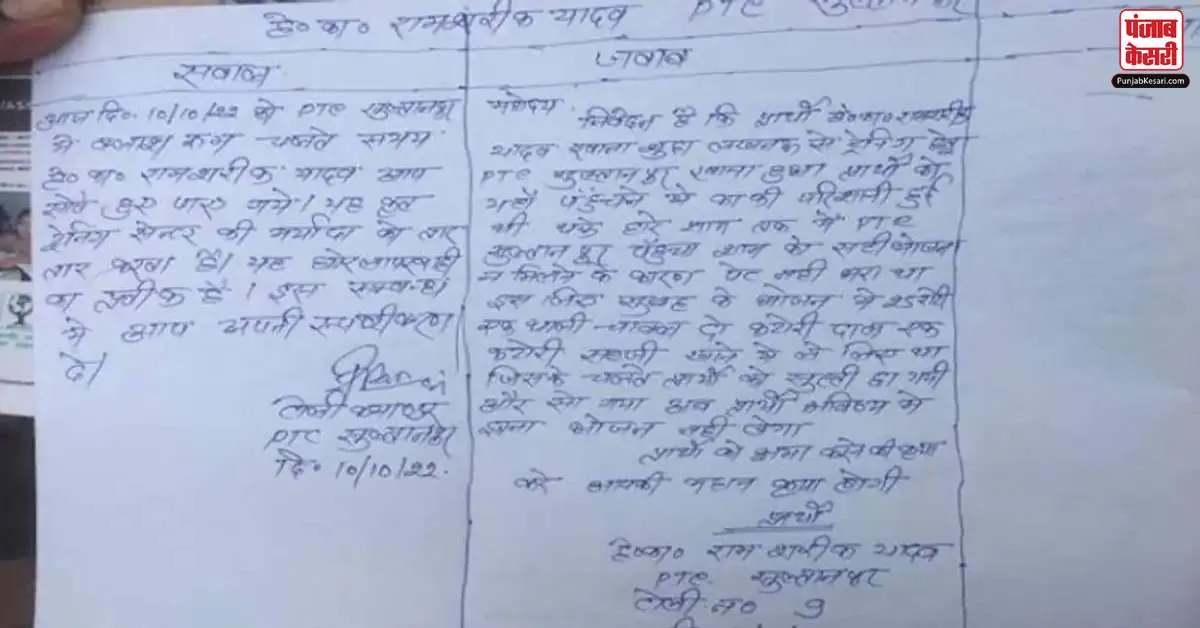 हे०का० रामशरीक यादव PTC सुल्तानपुर
पंजाब
केसरी
PunjabKesari.com
सवाल
आज दि० 10/10/22 को PTC सुल्तानपुर
मे क्लास रूम चलते समय
हे० का० रामशरीक यादव आप
सोते हुए पाए गये। यह कृत
ट्रेनिंग सेन्टर की मर्यादा को तार
तार करता है। यह घोर लापरवाही
का प्रतीक है। इस सम्बन्ध
मे आप अपनी स्पष्टीकरण
दे।
टोली कमाण्डर
PTC सुल्तानपुर
दि० 10/10/22.
जवाब
महोदय
निवेदन है कि प्रार्थी हे०का० रामशरीक
यादव लखनऊ से ट्रेनिंग हेतु
PTC सुल्तानपुर रवाना हुआ प्रार्थी को
यहाँ पंहुचने मे काफी परेशानी हुई
थी थके हारे शाम तक मे PTC
सुल्तानपुर पंहुचा शाम को सही भोजन
न मिलने के कारण पेट नही भरा था
इस लिए सुबह के भोजन मे 25 रोटी
एक थाली चावल दो कटोरी दाल एक
कटोरी सब्जी खाने मे ले लिए था
जिसके चलते प्रार्थी को सुस्ती आ गयी
और सो गया अब प्रार्थी भविष्य मे
इतना भोजन नही लेगा
प्रार्थी को क्षमा करने की कृपा
करे आपकी महान कृपा होगी
प्रार्थी
हे०का० राम शरीक यादव
PTC सुल्तानपुर
टोली न० 9